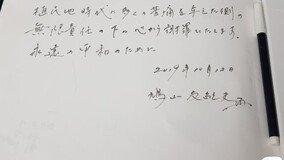 植民地時代に多くの苦痛を与えた側の
無限責任の下心から謝罪いたします。
永遠の平和のために
2019年10月12日
鳩山友紀夫